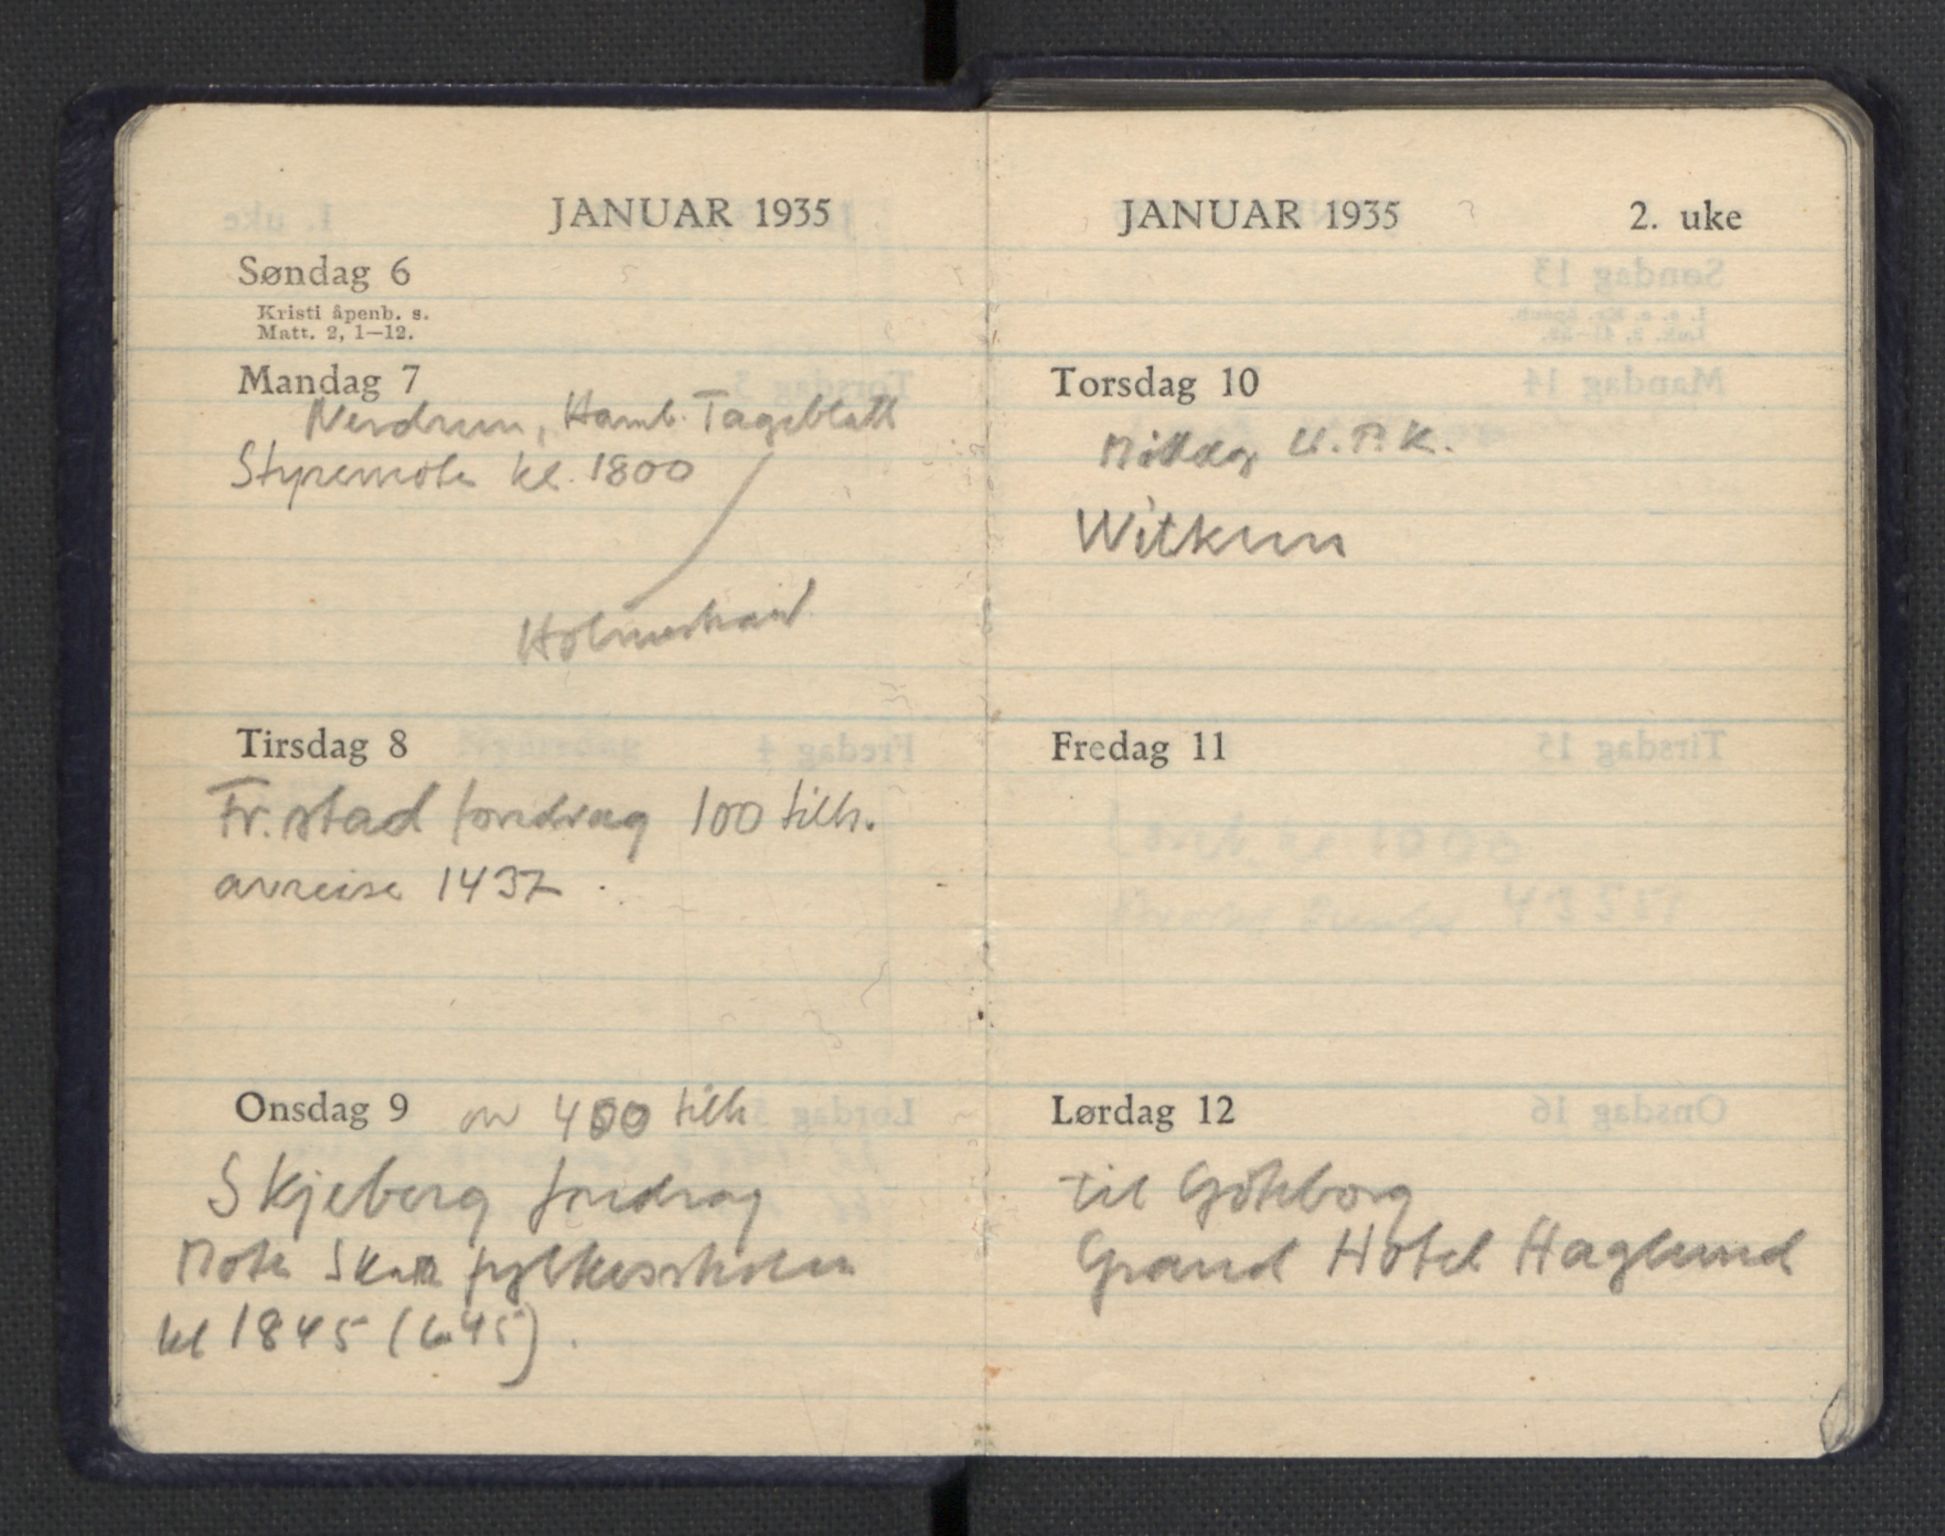 JANUAR 1935
Søndag 6
Kristi åpenb. s.
Matt. 2, 1—12.
Mandag 7
Nerdrum, Hamb. Tageblatt
Styremøte kl. 1800
Holmestrand
Tirsdag 8
Fr.stad foredrag 100 tilh.
avreise 1437
Onsdag 9 ov 400 tilh
Skjeberg foredrag
Møte fylkesskolen
kl 1845 (645).
JANUAR 1935 2. uke
Torsdag 10
Middag
Fredag 11
Lørdag 12
til Göteborg
Grand Hotel Haglund